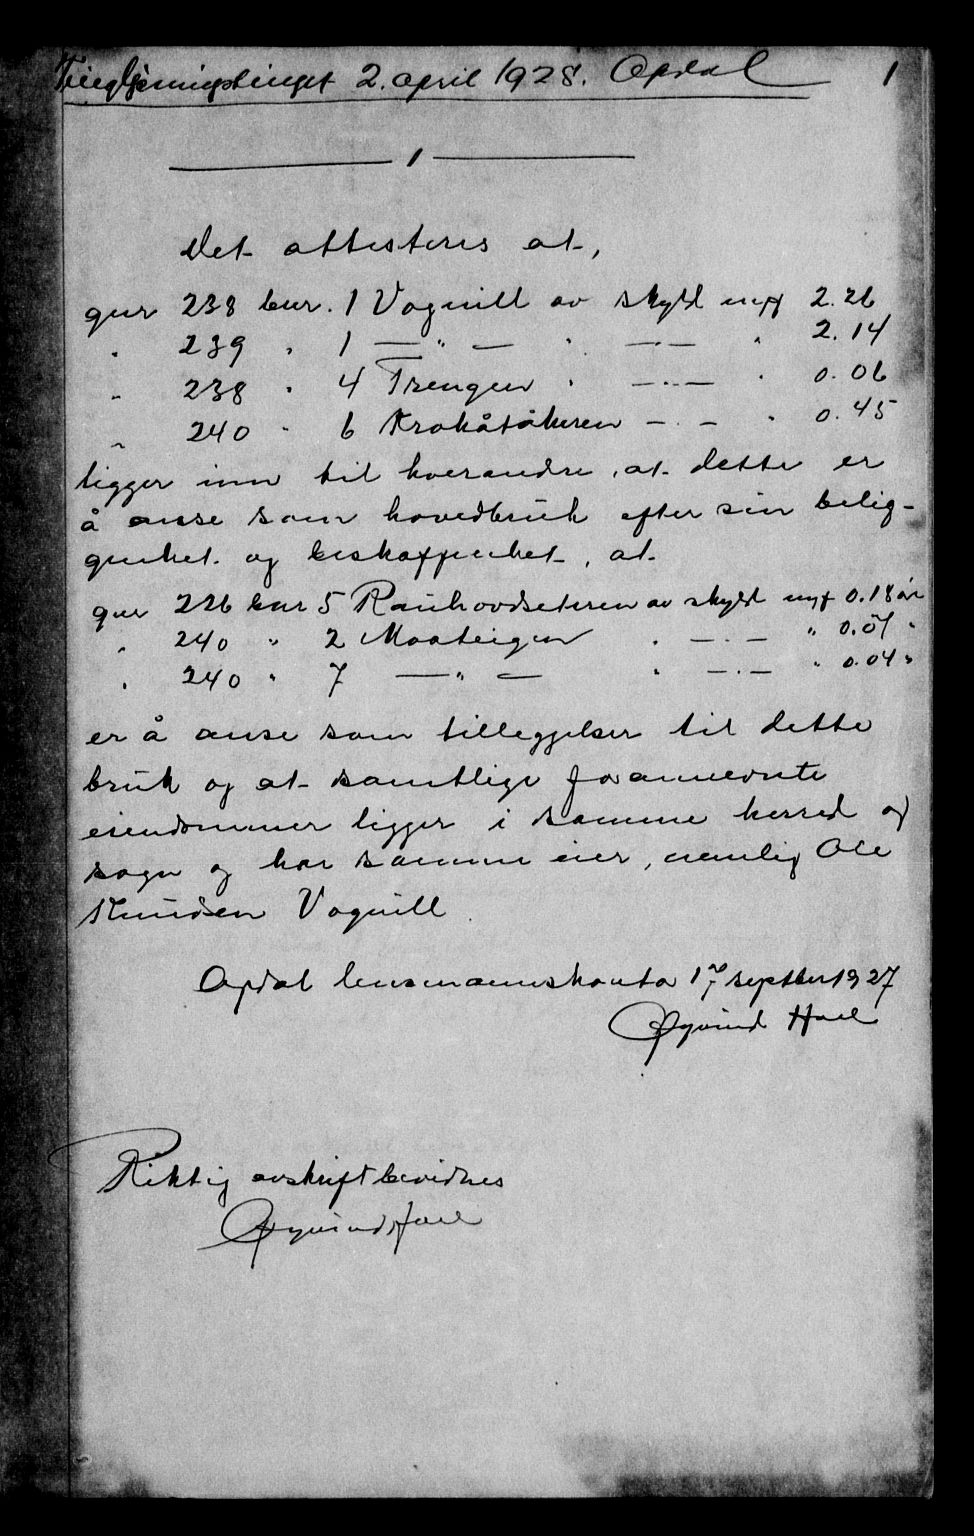 Tinglysningstinget 2. april 1928. Opdal 1
1
Det attesteres at,
gnr 238 bnr. 1 Vognill av skyld mrk 2.26
" 239 " 1 — " — " — " — " 2.14
" 238 " 4 Trengen " — " — " 0.06
" 240 " 6 Krokåtåkeren — " — " 0.45
ligger inn til hverandre, at dette er
å anse som hovedbruk efter sin belig-
genhet og beskaffenhet, at
gnr 226 bnr 5 Rauhovdseteren av skyld mrk 0.18 øre
" 240 " 2 Maateigen " — " — " 0.07 "
" 240 " 7 — " — " — " — " 0.04 "
er å anse som tilleggelser til dette
bruk og at samtlige forannevnte
eiendommer ligger i samme herred og
sogn og har samme eier, nemlig Ole
Knudsen Vognill
Opdal lensmannskontor 17 septbr 1927
Øyvind Hoel
Riktig avskrift bevidnes
Øyvind Hoel